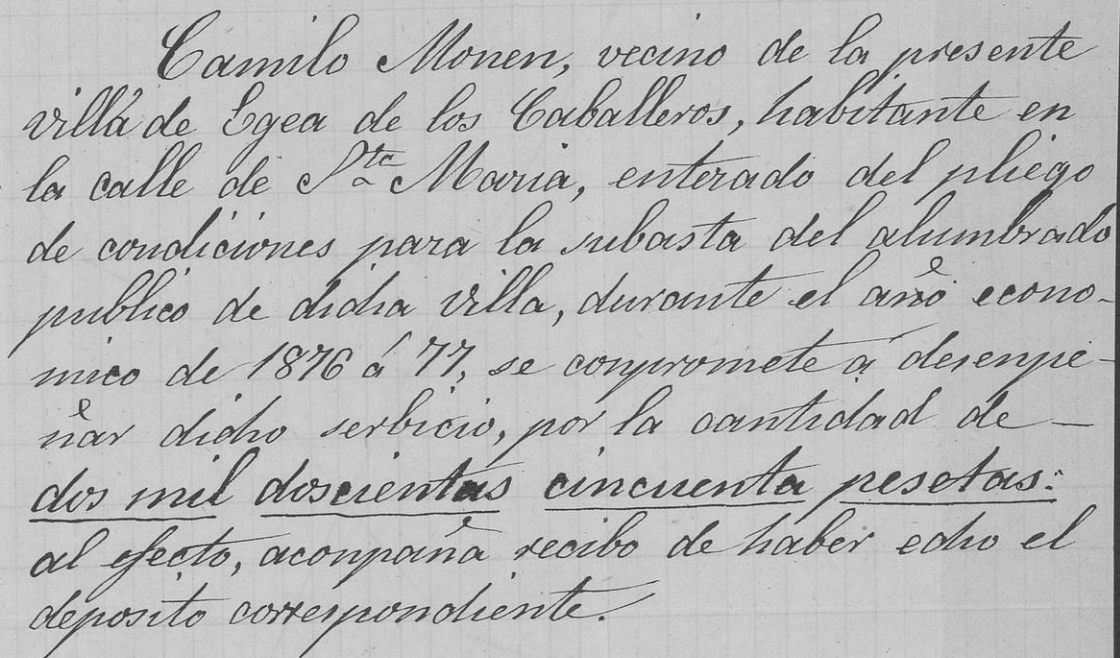 Camilo Monen, vecino de la presente
villa de Egea de los Caballeros, habitante en
la calle de Sta Maria, enterado del pliego
de condiciones para la subasta del alumbrado
publico de dicha villa, durante el año econo-
mico de 1876 á 77, se conpromete á desenpe-
ñar dicho serbicio, por la cantidad de —
dos mil doscientas cincuenta pesetas:
al efecto, aconpaña recibo de haber echo el
deposito correspondiente.